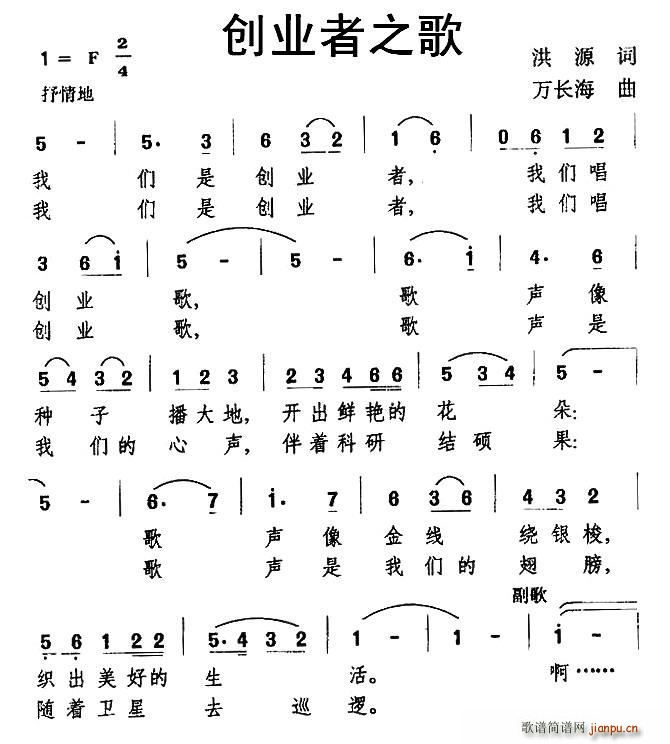 创业者之歌
1 = F 2/4
洪源 词
抒情地
万长海 曲
5 - | 5. 3 | 6 3 2 | 1 6 | 0 6 1 2 |
我 们 是 创 业 者, 我 们 唱
我 们 是 创 业 者, 我 们 唱
3 6 i | 5 - | 5 - | 6. i | 4. 6 |
创 业 歌, 歌 声 像
创 业 歌, 歌 声 是
5 4 3 2 | 1 2 3 | 2 3 4 6 6 | 5 3 4 | 5 - |
种 子 播 大 地, 开 出 鲜 艳 的 花 朵:
我 们 的 心 声, 伴 着 科 研 结 硕 果:
5 - | 6. 7 | i. 7 | 6 3 6 | 4 3 2 |
歌 声 像 金 线 绕 银 梭,
歌 声 是 我 们 的 翅 膀,
副歌
5 6 1 2 2 | 5. 4 3 2 | 1 - | 1 - | i - |
织 出 美 好 的 生 活。 啊……
随 着 卫 星 去 巡 逻。
歌谱简谱网
jianpu.cn